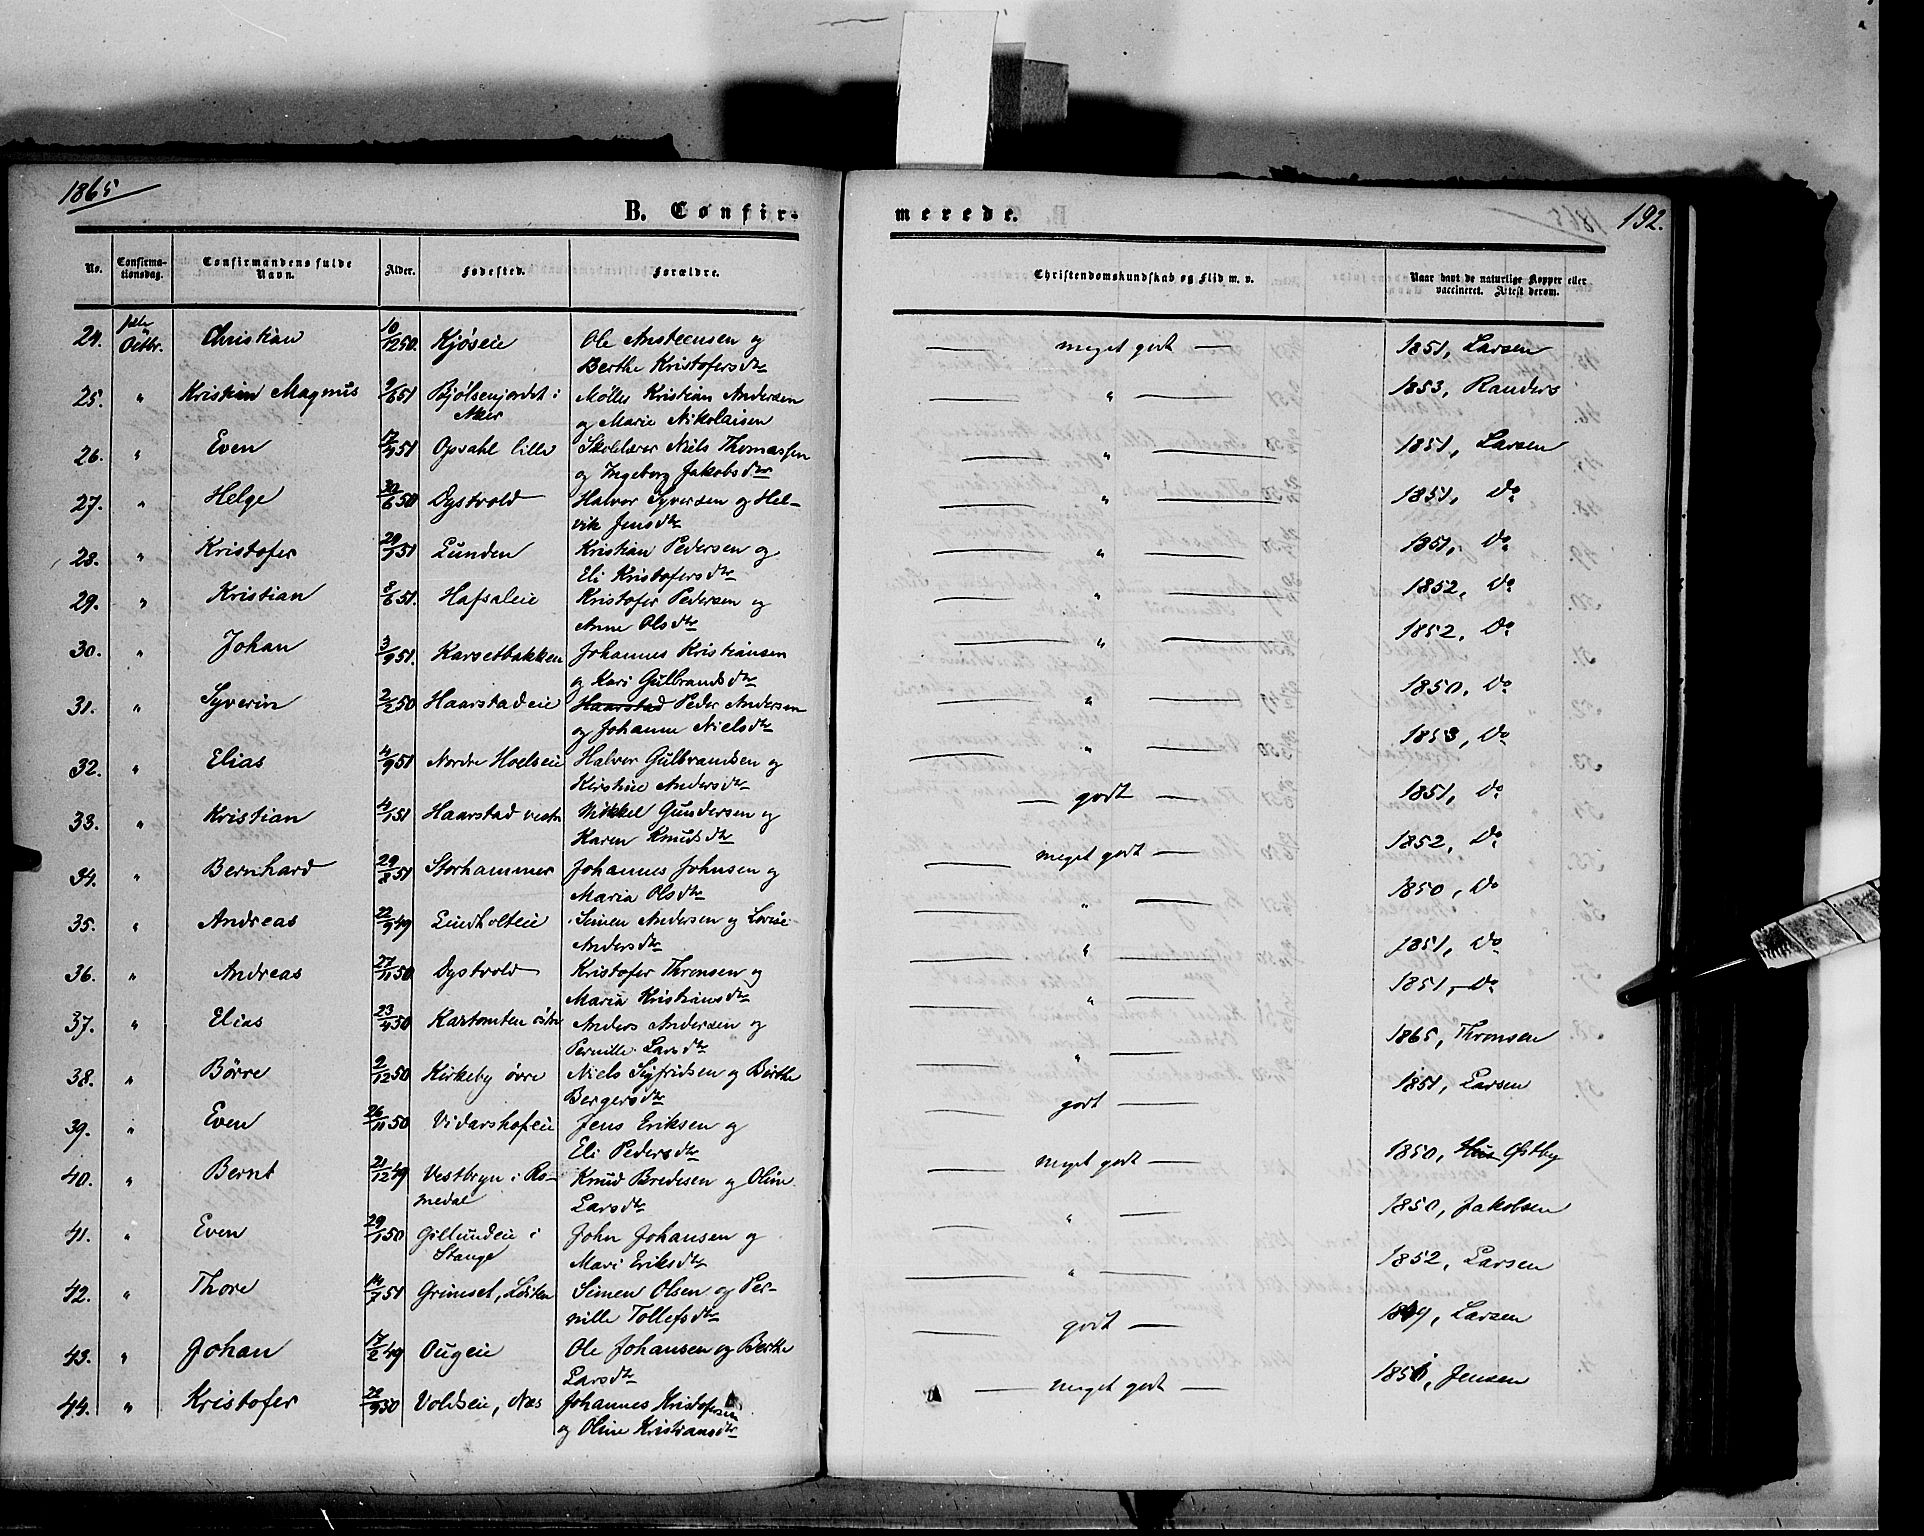 1865
B. Confir-
merede.
192.
No. Confirma-tionsdag. Confirmandens fulde Navn. Alder. Fødested. Forældre. Christendomskundskab og Flid m. v. Naar havt de naturlige Kopper eller vaccineret. Attest derom.
24. Octbr. Christian 10/12 50. Kjøseie Ole Amsteensen og — meget godt — 1851, Larsen
Berthe Kristofersdtr
25. " Kristian Magnus 9/6 51 Bjølsenjordet i Møller Kristian Andersen — " — 1853, Randers
Aker og Marie Nikolaisen
26. " Even 17/4 51 Opsahl lille Skolelærer Niels Thomassen — " — 1851, Larsen
og Ingeborg Jakobsdtr
27. " Helge 30/6 50 Dystvold Halvor Syversen og Hel- — " — 1851, Do
vik Jensdtr
28. " Kristofer 29/1 51 Lunden Kristian Pedersen og — " — 1851, Do
Eli Kristofersdtr
29. " Kristian 8/6 51. Hafsaleie Kristofer Pedersen og — " — 1852, Do
Anne Olsdtr
30. " Johan 3/9 51. Karsetbakken Johannes Kristiansen — " — 1852, Do
og Kari Gulbrandsdtr
31. " Syverin 2/2 50 Haarstadeie Haarstad Peder Andersen — " — 1850, Do
og Johanne Nielsdtr
32. " Elias 4/9 51 Nordre Hoelseie Halvor Gulbrandsen og — " — 1853, Do
Kirstine Andersdtr
33. " Kristian 4/1 51 Haarstad vestre Mikkel Gundersen og — godt — 1851, Do
Karen Knudsdtr
34. " Bernhard 29/8 51 Storhammer Johannes Johnsen og — meget godt — 1852, Do
Maria Olsdtr
35. " Andreas 22/9 49 Lindholteie Simen Andersen og Lovise — " — 1850, Do
Andersdtr
36. " Andreas 27/11 50 Dystvold Kristofer Thronsen og — " — 1851, Do
Maria Kristiansdtr
37. " Elias 23/4 50 Kartomten østre Anders Andersen og — " — 1851, Do
Pernille Larsdtr
38. " Børre 2/12 50 Kirkeby øvre Niels Sigfridsen og Berthe — " — 1865, Thronsen
Bergersdtr
39. " Even 26/11 50 Vidarshofeie Jens Eriksen og — godt — 1851, Larsen
Eli Pedersdtr
40. " Bernt 21/12 49 Vestbyn i Ro- Knud Bredesen og Oline — meget godt — 1850, Østby
medal Larsdtr
41. " Even 29/1 50 Gillundeie i John Johansen og — " — 1850, Jakobsen
Stange Mari Eriksdtr
42. " Thore 14/7 51 Grimset, Løiten Simen Olsen og Per- — " — 1852, Larsen
nille Tollefsdtr
43. " Johan 17/2 49 Ougeie Ole Johansen og Berthe — godt — 1849, Larsen
Larsdtr
44. " Kristofer 22/9 50 Voldseie, Næs Johannes Kristofersen — meget godt — 1851, Jensen
og Oline Kristiansdtr